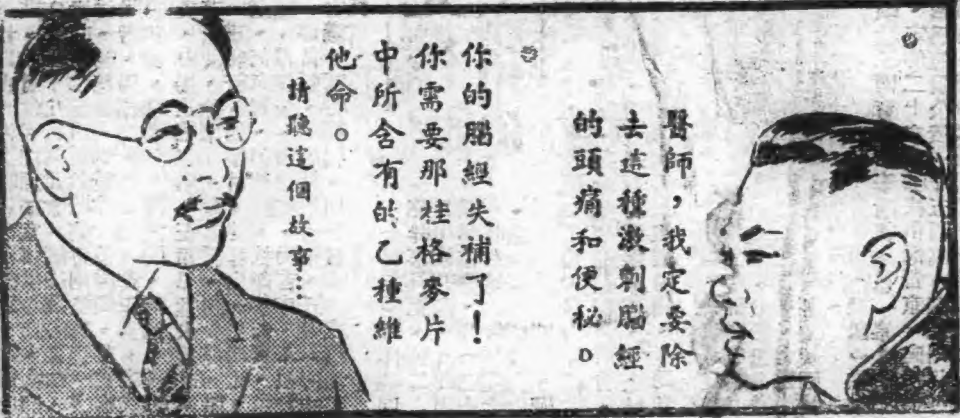 醫師，我定要除
去這種激刺腦經
的頭痛和便秘。
你的腦經失補了！
你需要那桂格麥片
中所含有的乙種維
他命。
請聽這個故事…